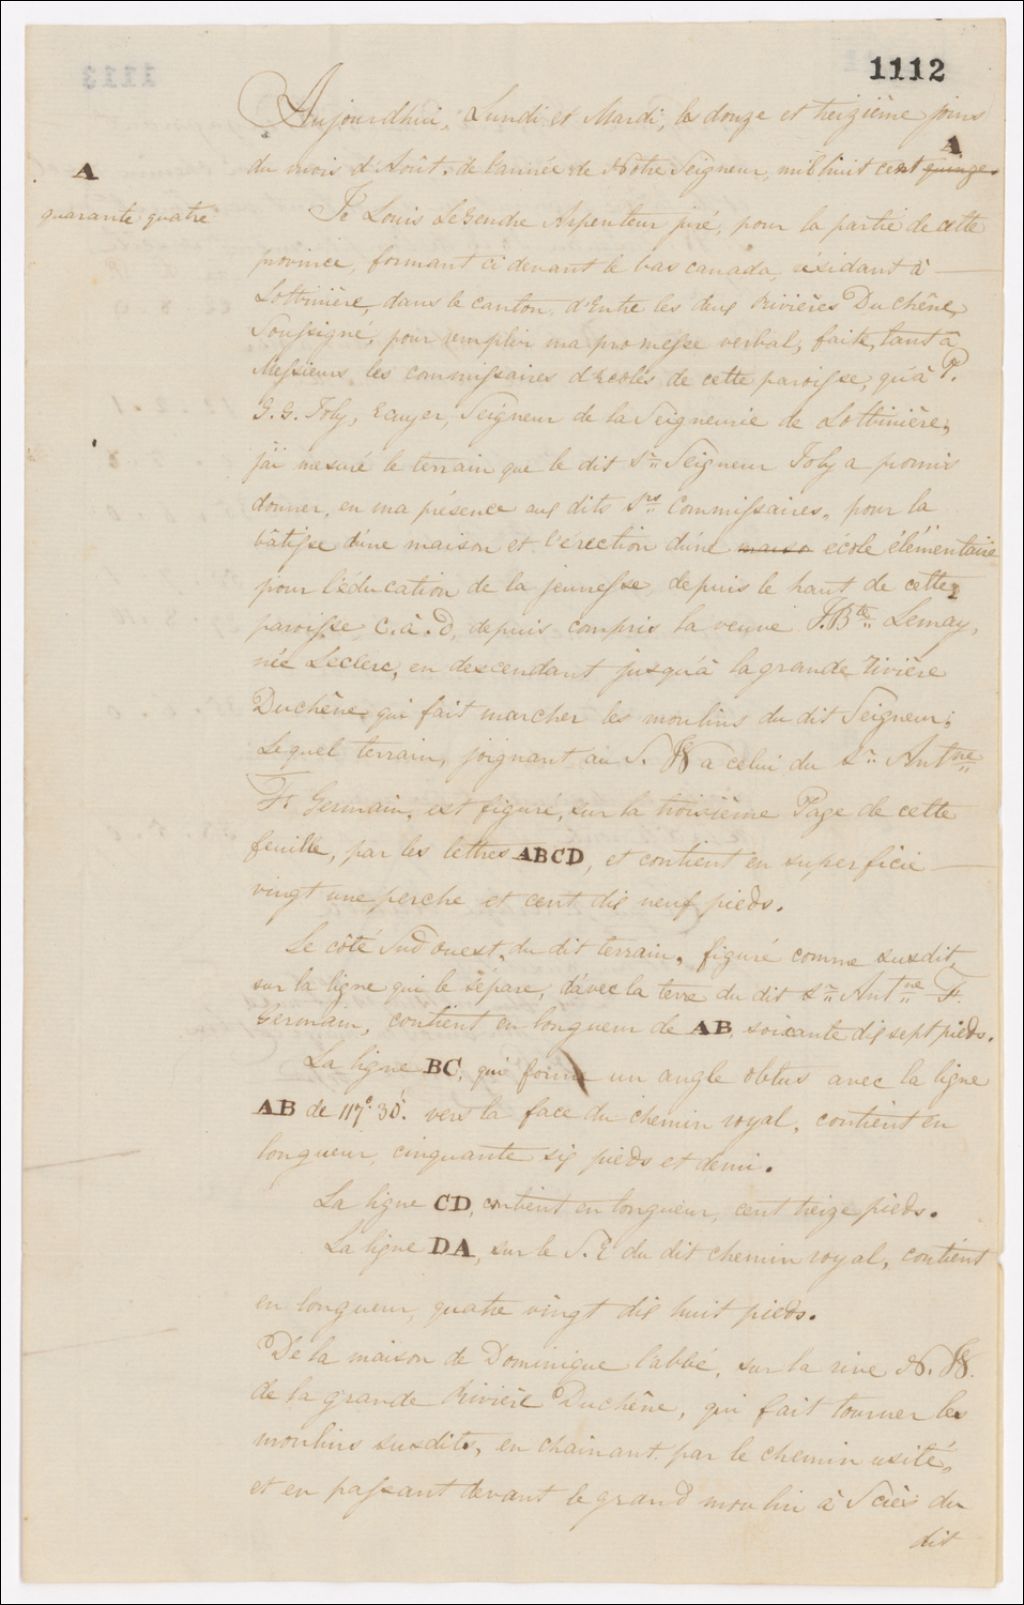 1112
Aujourdhui, Lundi et Mardi, les douze et treizième jours
A
du mois d'Août, de l'année de Notre Seigneur, mil huit cent quinze.
A
quarante quatre
Je Louis LeGendre Arpenteur juré, pour la partie de cette
province, formant ci devant le bas canada, résidant à
Lotbinière, dans le canton d'Entre les deux Rivières Duchêne,
Soussigné, pour remplir ma promesse verbal, faite, tant à
Messieurs les commissaires d'Ecoles de cette paroisse, qu'à P.
G. G. Joly, Ecuyer, Seigneur de la Seigneurie de Lotbinière,
j'ai mesuré le terrain que le dit Sr Seigneur Joly a promis
donner, en ma présence aux dits Srs Commissaires, pour la
bâtisse d'une maison et l'érection d'une maison école élémentaire
pour l'éducation de la jeunesse, depuis le haut de cette
paroisse, c.à.d, depuis compris la veuve J. Bte Lemay,
née Leclerc, en descendant jusqu'à la grande rivière
Duchêne qui fait marcher les moulins du dit Seigneur;
Lequel terrain, joignant au S. W a celui du Sr Antne
F. Germain, est figuré, sur la troisième Page de cette
feuille, par les lettres ABCD, et contient en superficie
vingt une perche et cent dix neuf pieds.
Le côté Sud Ouest, du dit terrain, figuré comme susdit,
sur la ligne qui le sépare, d'avec la terre du dit Sr Antne F.
Germain, contient en longueur de AB, soixante dix sept pieds.
La ligne BC, qui forme un angle obtus avec la ligne
AB de 117°. 30'. vers la face du chemin royal, contient en
longueur, cinquante six pieds et demi.
La ligne CD, contient en longueur, cent treize pieds.
La ligne DA, sur le S. E du dit chemin royal, contient
en longueur, quatre vingt dix huit pieds.
De la maison de Dominique l'abbé, sur la rive N. W.
de la grande Rivière Duchêne, qui fait tourner les
moulins susdits, en chainant par le chemin usité,
et en passant devant le grand moulin à Scies du
dit